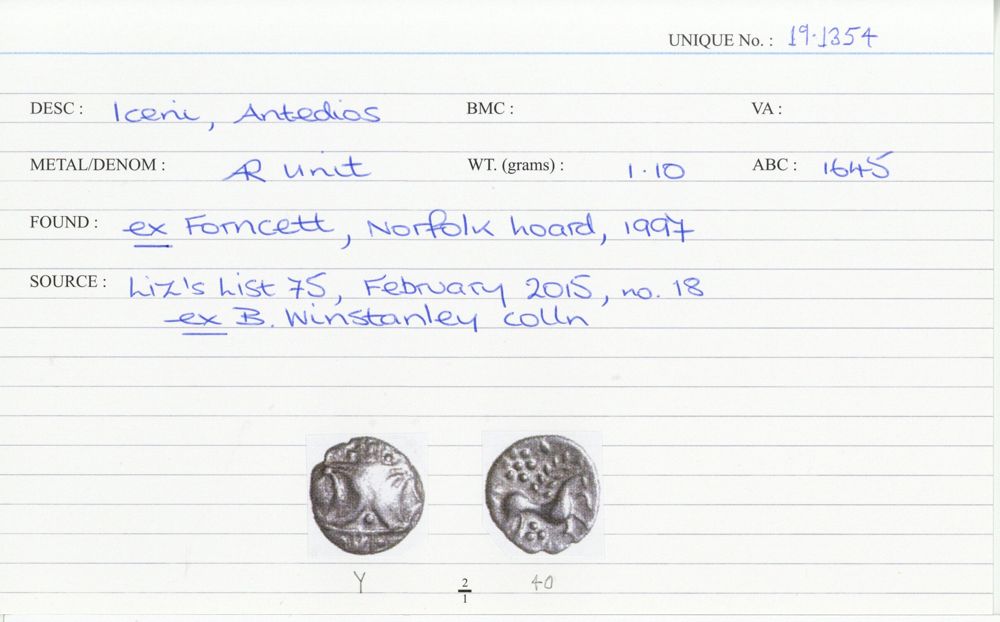 UNIQUE No. : 19·1354
DESC : Iceni, Antedios BMC : VA :
METAL/DENOM : AR unit WT. (grams) : 1·10 ABC : 1645
FOUND : ex Forncett, Norfolk hoard, 1997
SOURCE : Liz's List 75, February 2015, no. 18
ex B. Winstanley colln
Y 2/1 40